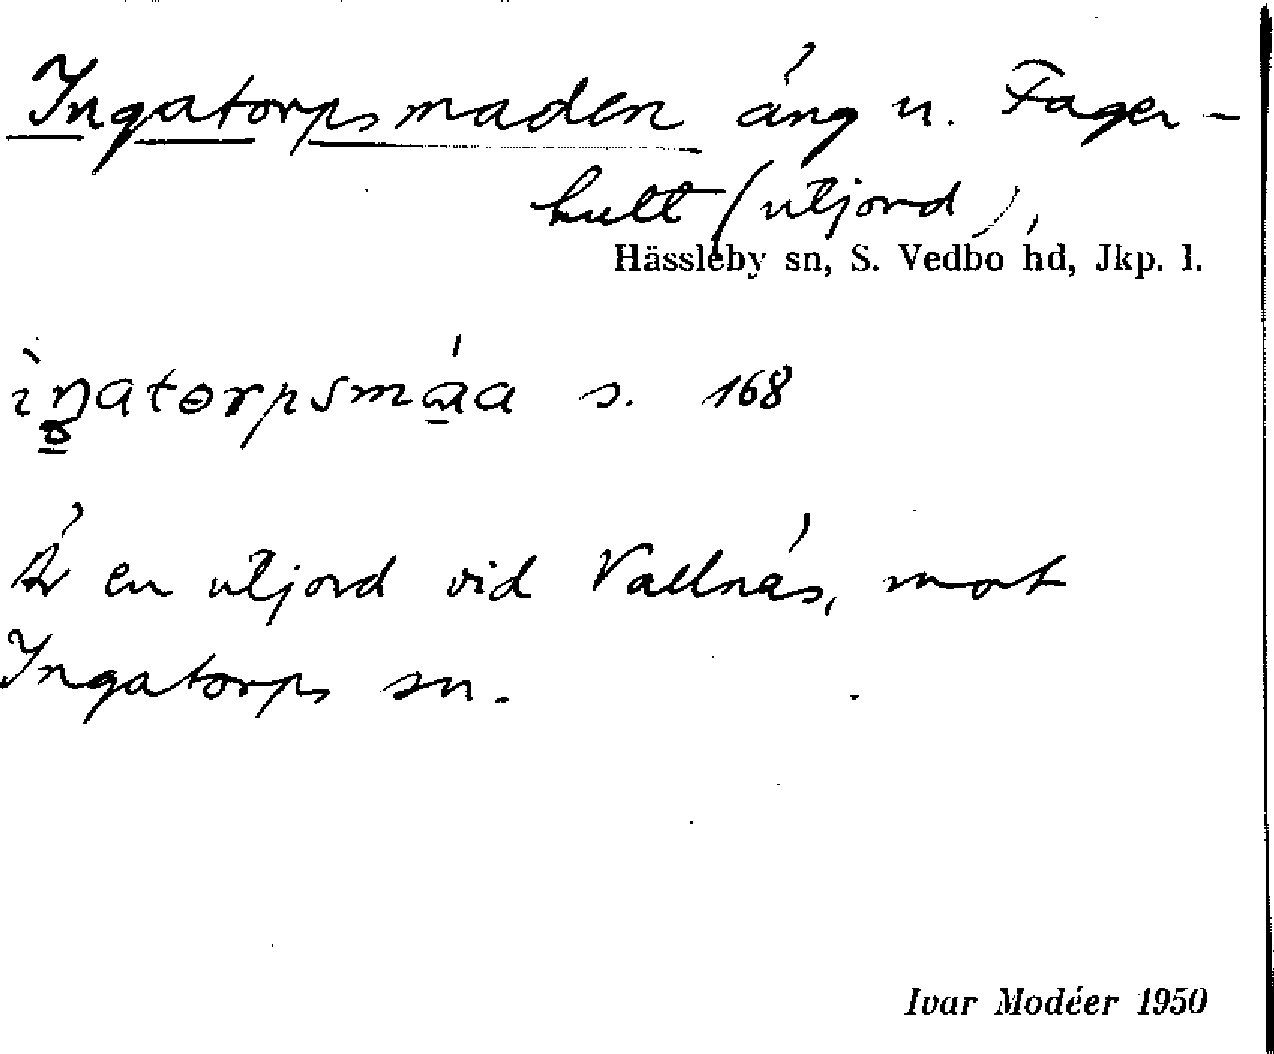 Ingatorpsmaden äng u. Fager-
hult (utjord),
Hässleby sn, S. Vedbo hd, Jkp. l.
s. 168
Är en utjord vid Vallnäs, mot
Ingatorps sn.
Ivar Modéer 1950